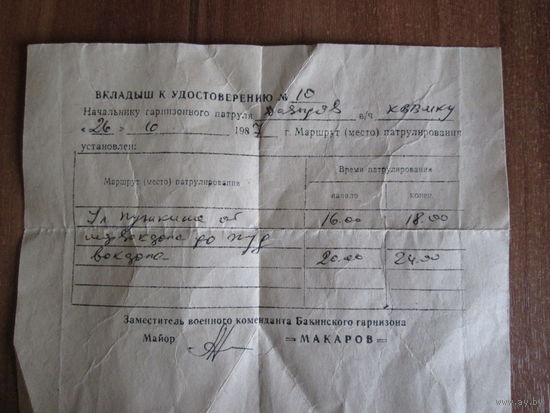 ВКЛАДЫШ К УДОСТОВЕРЕНИЮ № 10
Начальнику гарнизонного патруля в/ч
« 26 » 10 1987 г. Маршрут (место) патрулирования
установлен:
Маршрут (место) патрулирования
Время патрулирования
начало
конец
Ул Пушкина от 16.00 18.00
до ж/д
вокзала 20.00 24.00
Заместитель военного коменданта Бакинского гарнизона
Майор = МАКАРОВ =
www.ay.by